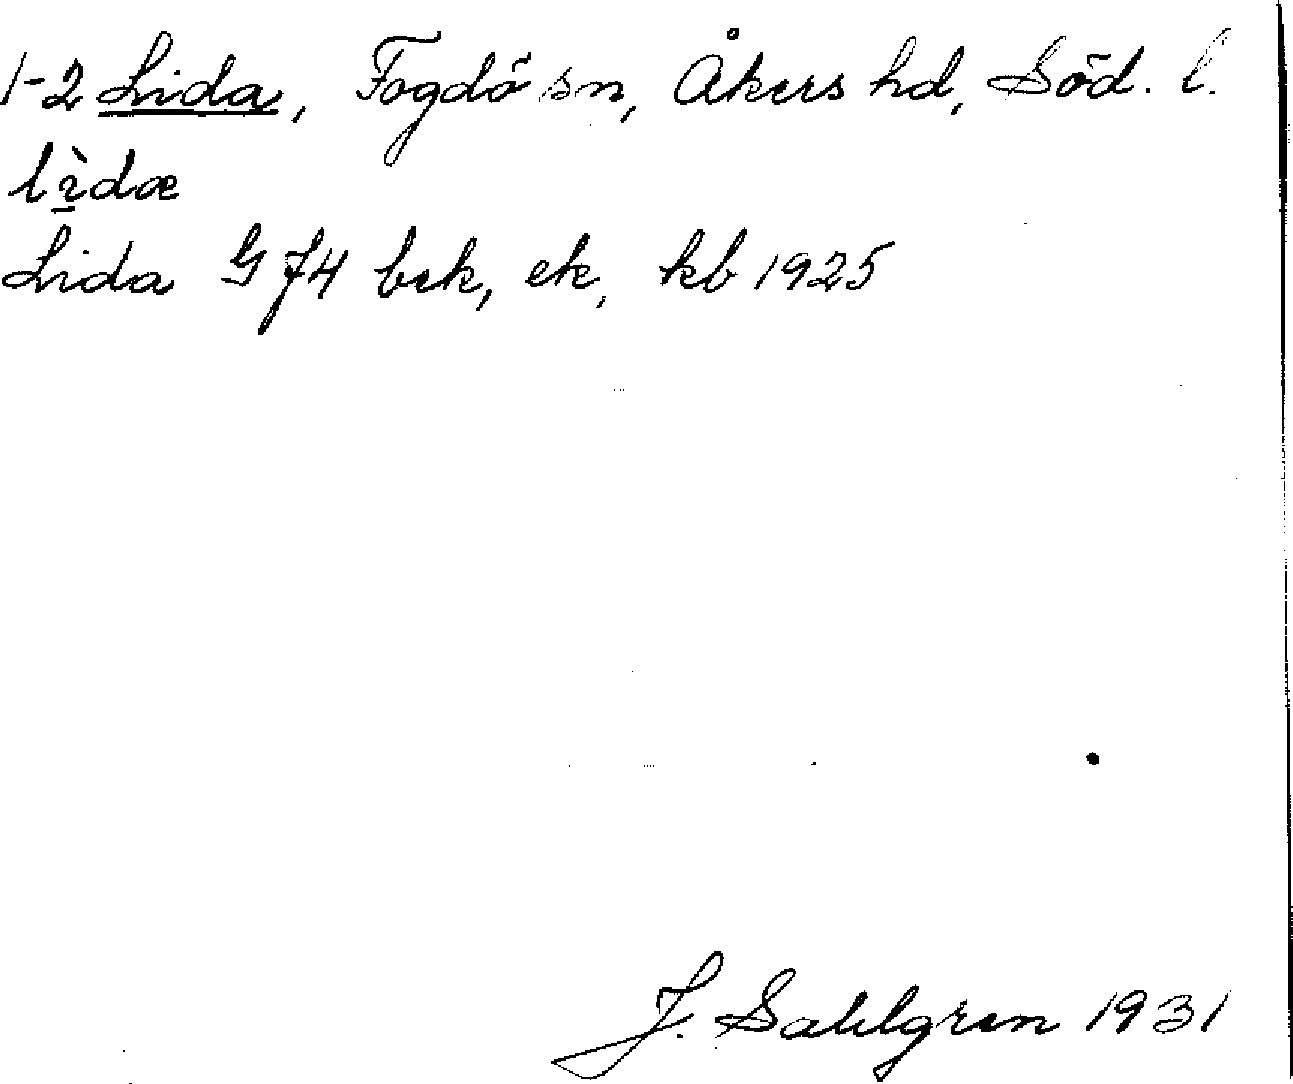 1-2 Lida, Fogdö sn, Åkers hd, Söd. l.
lì̱dæ
Lida GJ4 bek, ek, kb 1925
J. Sahlgren 1931